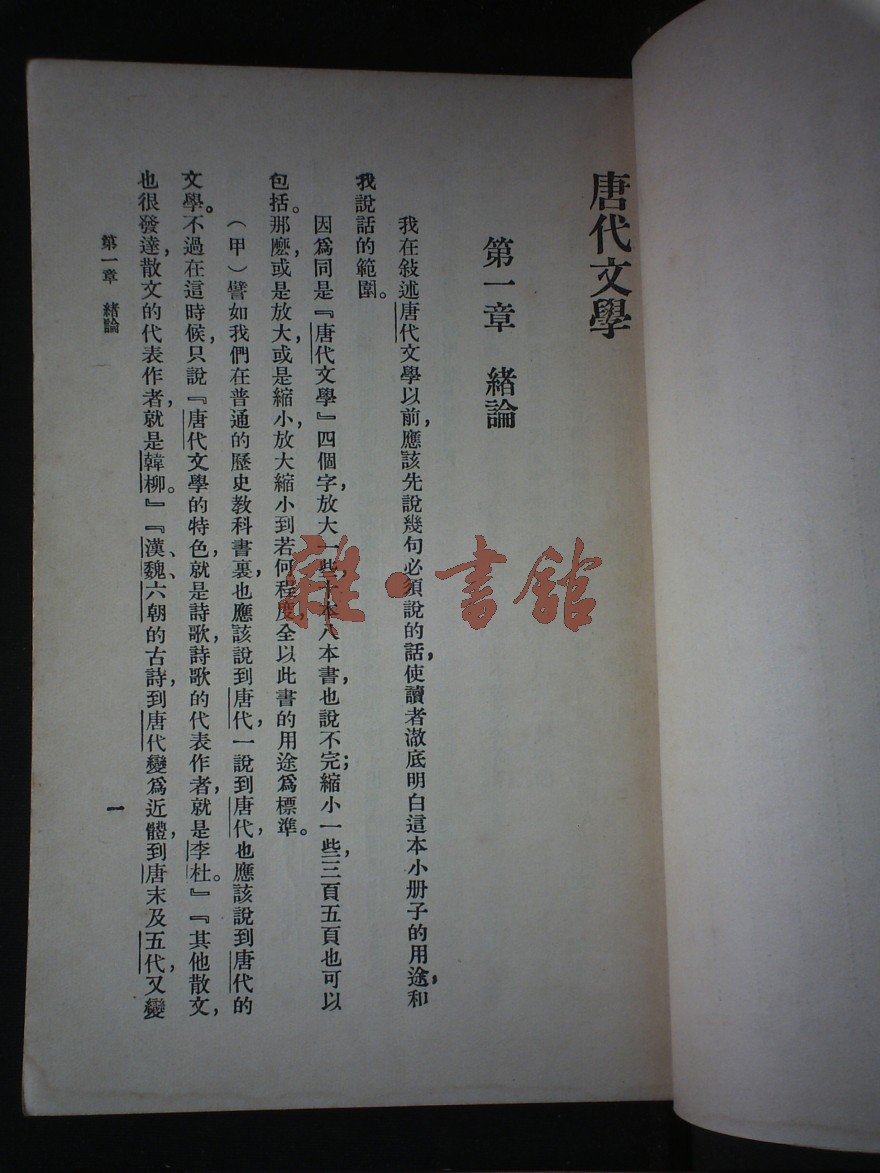 唐代文學
第一章　緒論
我在敍述唐代文學以前，應該先說幾句必須說的話，使讀者澈底明白這本小册子的用途，和
我說話的範圍。
因爲同是『唐代文學』四個字，放大一些，十本八本書，也說不完；縮小一些，三頁五頁也可以
包括。那麽，或是放大，或是縮小，放大縮小到若何程度，全以此書的用途爲標準。
（甲）譬如我們在普通的歷史教科書裏，也應該說到唐代，一說到唐代，也應該說到唐代的
文學。不過在這時候，只說『唐代文學的特色，就是詩歌，詩歌的代表作者，就是李杜。』『其他散文，
也很發達，散文的代表作者，就是韓柳。』『漢、魏、六朝的古詩，到唐代變爲近體，到唐末及五代，又變
第一章　緒論
一
雜·書館